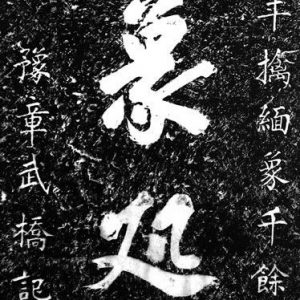 擒緬象千餘
象处
豫章武橋記